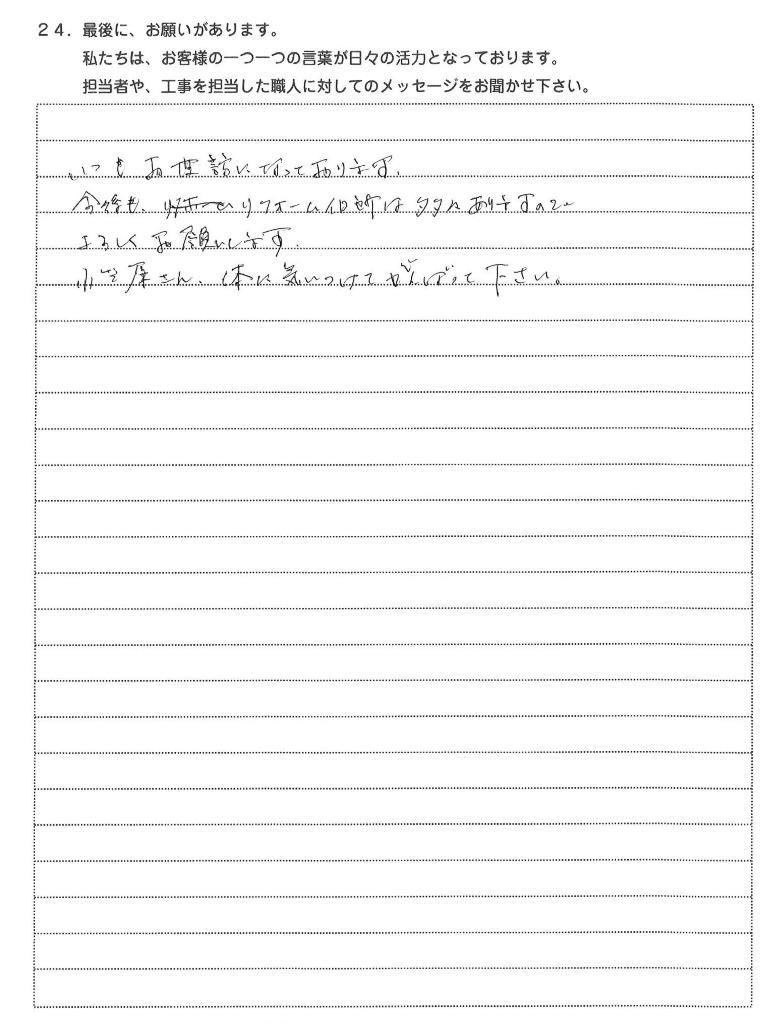 24. 最後に、お願いがあります。
私たちは、お客様の一つ一つの言葉が日々の活力となっております。
担当者や、工事を担当した職人に対してのメッセージをお聞かせ下さい。
いつもお世話になっております。
今後も、リフォーム個所は多々ありますので
よろしくお願いします。
小笠原さん、体に気いつけてがんばって下さい。